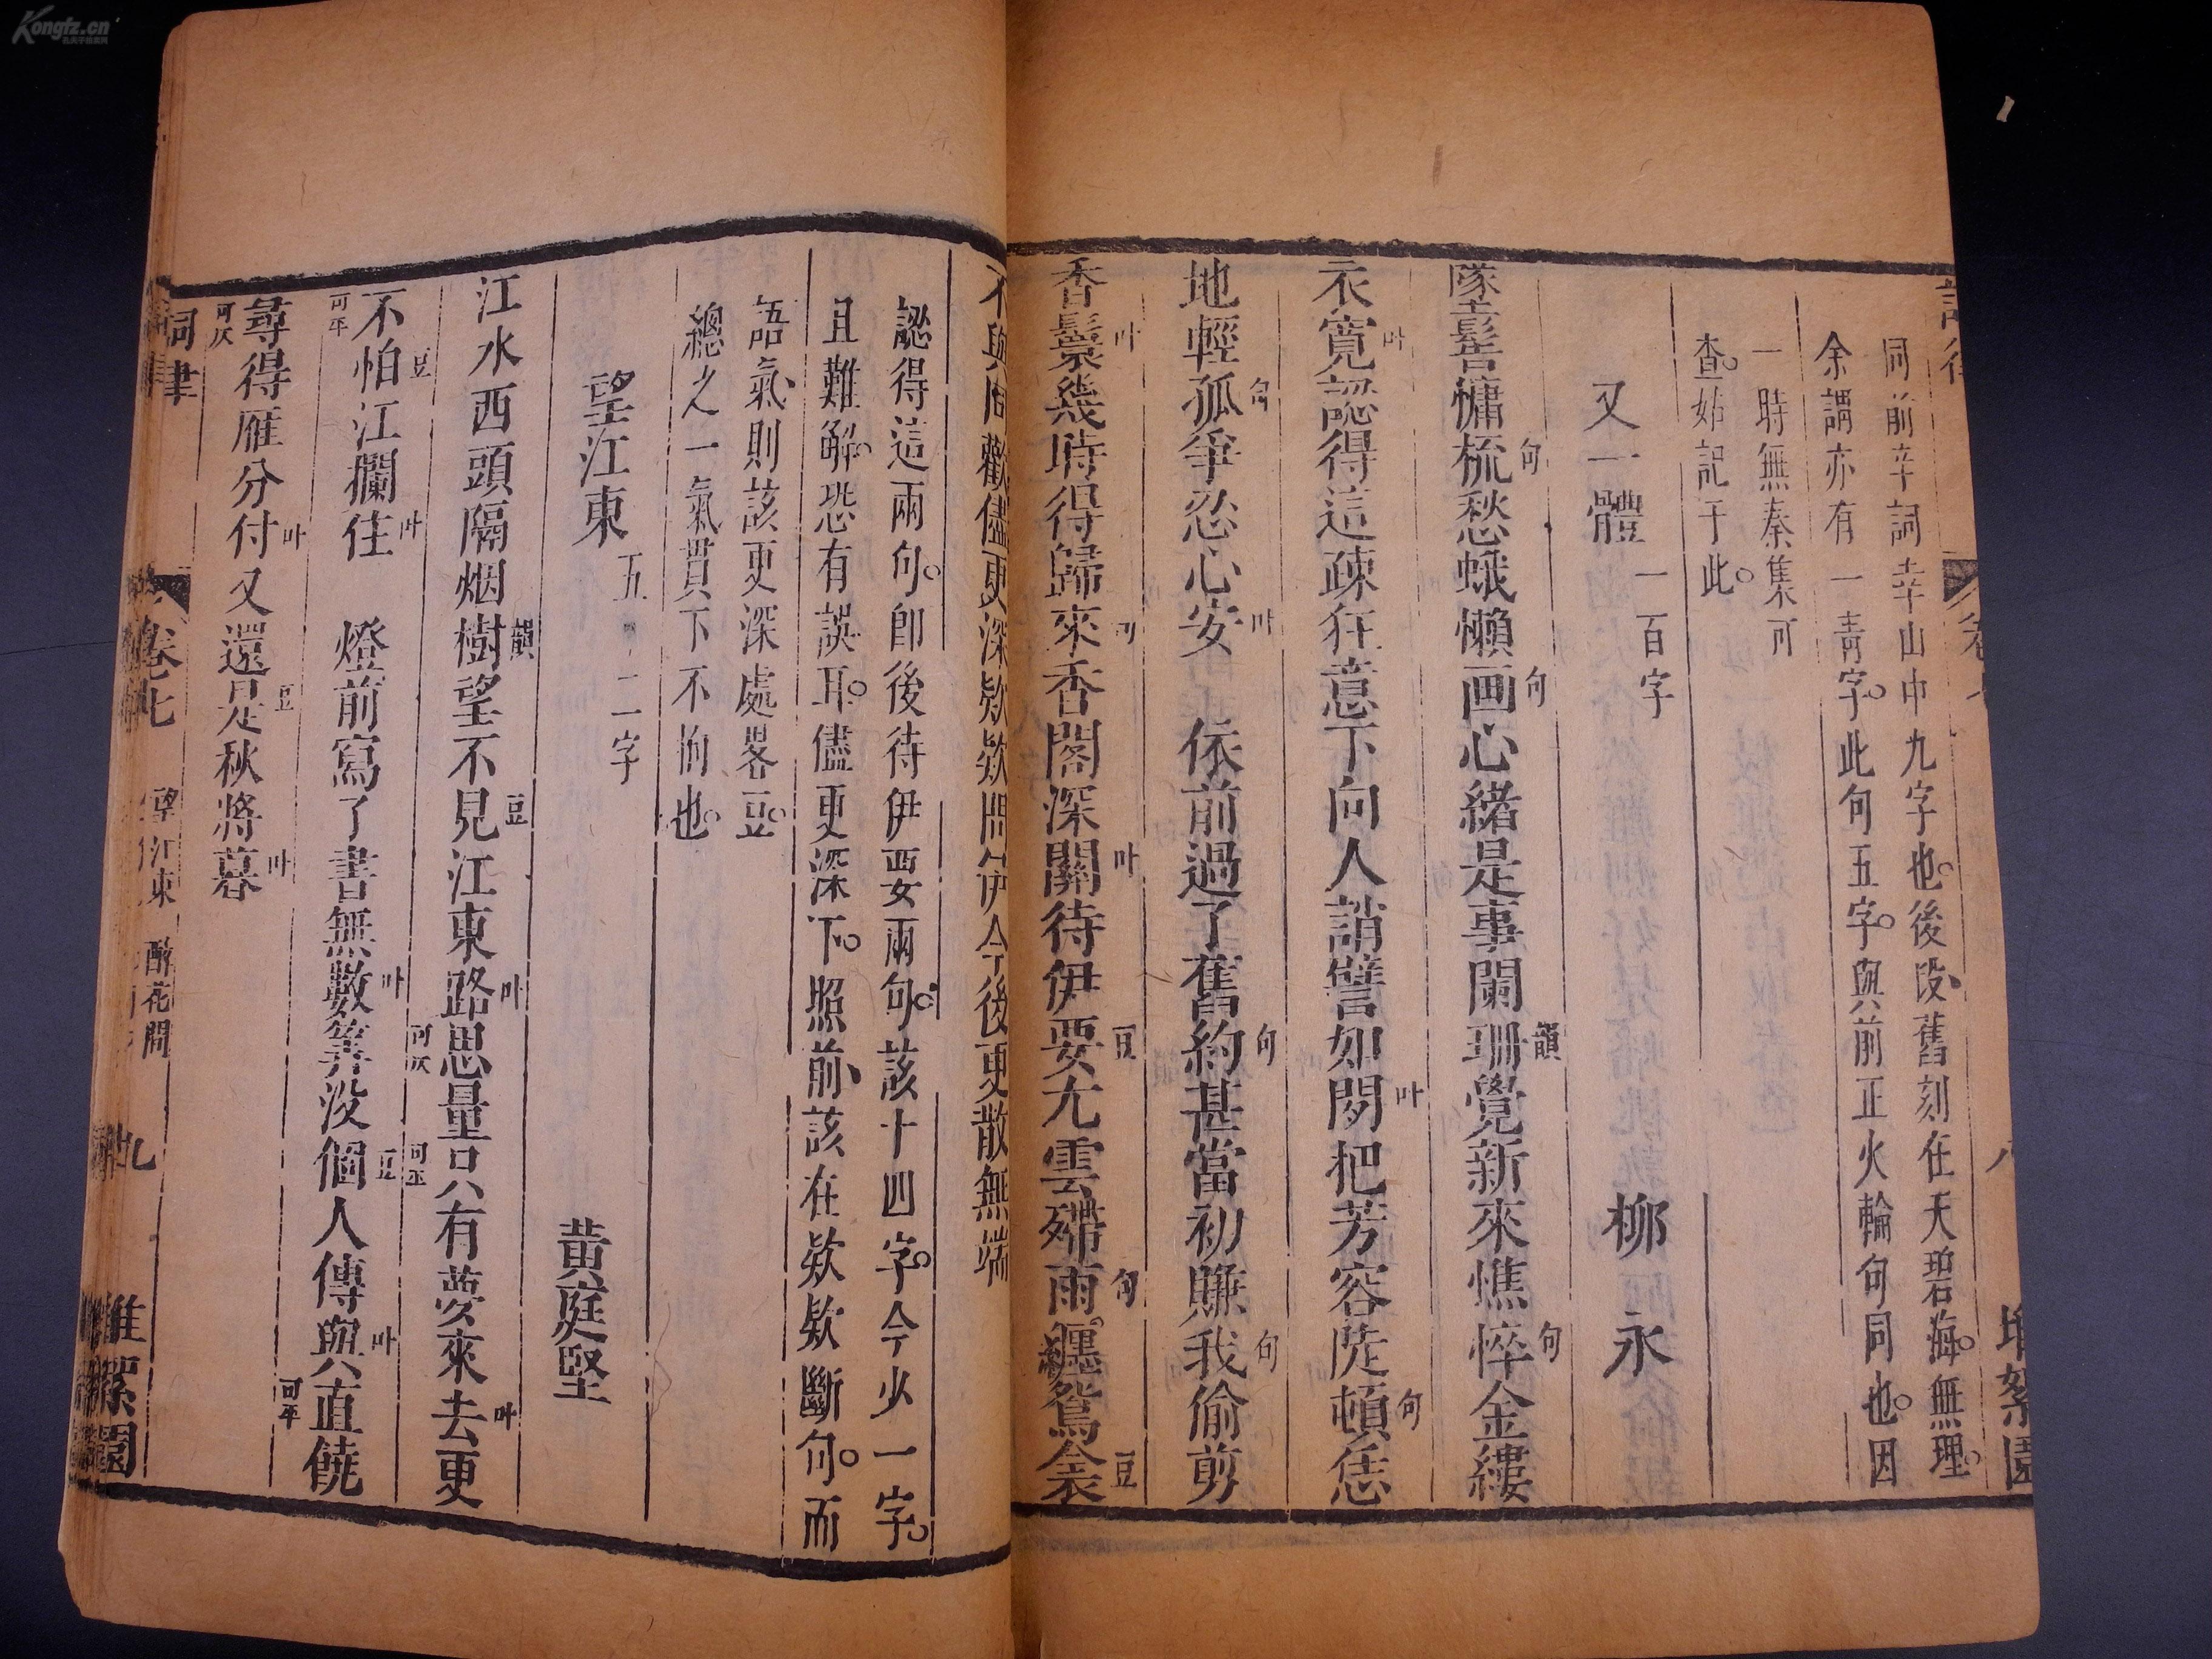 同前辛詞幸山中九字也後段舊刻在天碧海無理
余謂亦有一靑字此句五字與前正火輪句同也因
一時無秦集可
查姑記于此
又一體 一百字 柳永
墜髻慵梳句愁蛾懶画句心緒是事闌珊韻覺新來憔悴句金縷
衣寬叶認得這疎狂意下向人誚譬如閒叶把芳容陡頓句恁
地輕孤句爭忍心安叶 依前過了舊約句甚當初賺我句偷剪
香鬟叶幾時得歸來句香閣深關叶待伊要豆尤雲殢雨句纏鴛衾豆
不與同歡儘更深欵欵問伊今後更散無端
認得這兩句卽後待伊要兩句該十四字今少一字
且難解恐有誤耳儘更深下照前該在欵欵斷句而
語氣則該更深處畧豆
總之一氣貫下不拘也
望江東 五十二字 黃庭堅
江水西頭隔烟樹韻望不見豆江東路叶思可仄量只可平有夢來去叶更
不可平怕豆江攔住叶 燈前寫了書無數叶算没個豆人傳與叶直饒可平
尋可仄得雁分付叶又還是豆秋將暮叶
詞律 卷七 望江東 醉花間 九 堆絮園